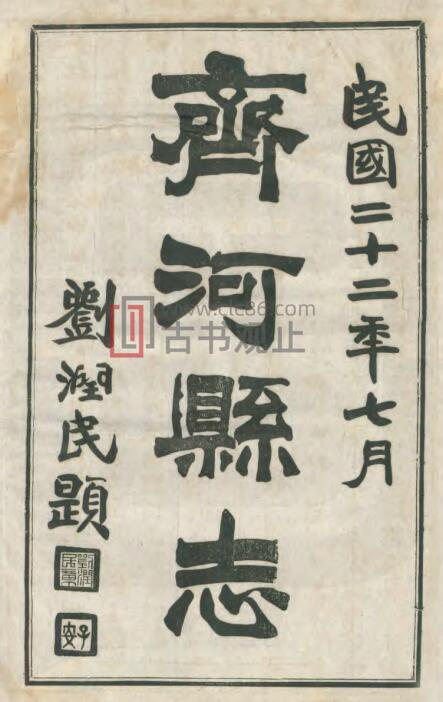 民國二十二年七月
齊河縣志
劉潤民題
劉潤民章
www.ctc86.com
古书观止